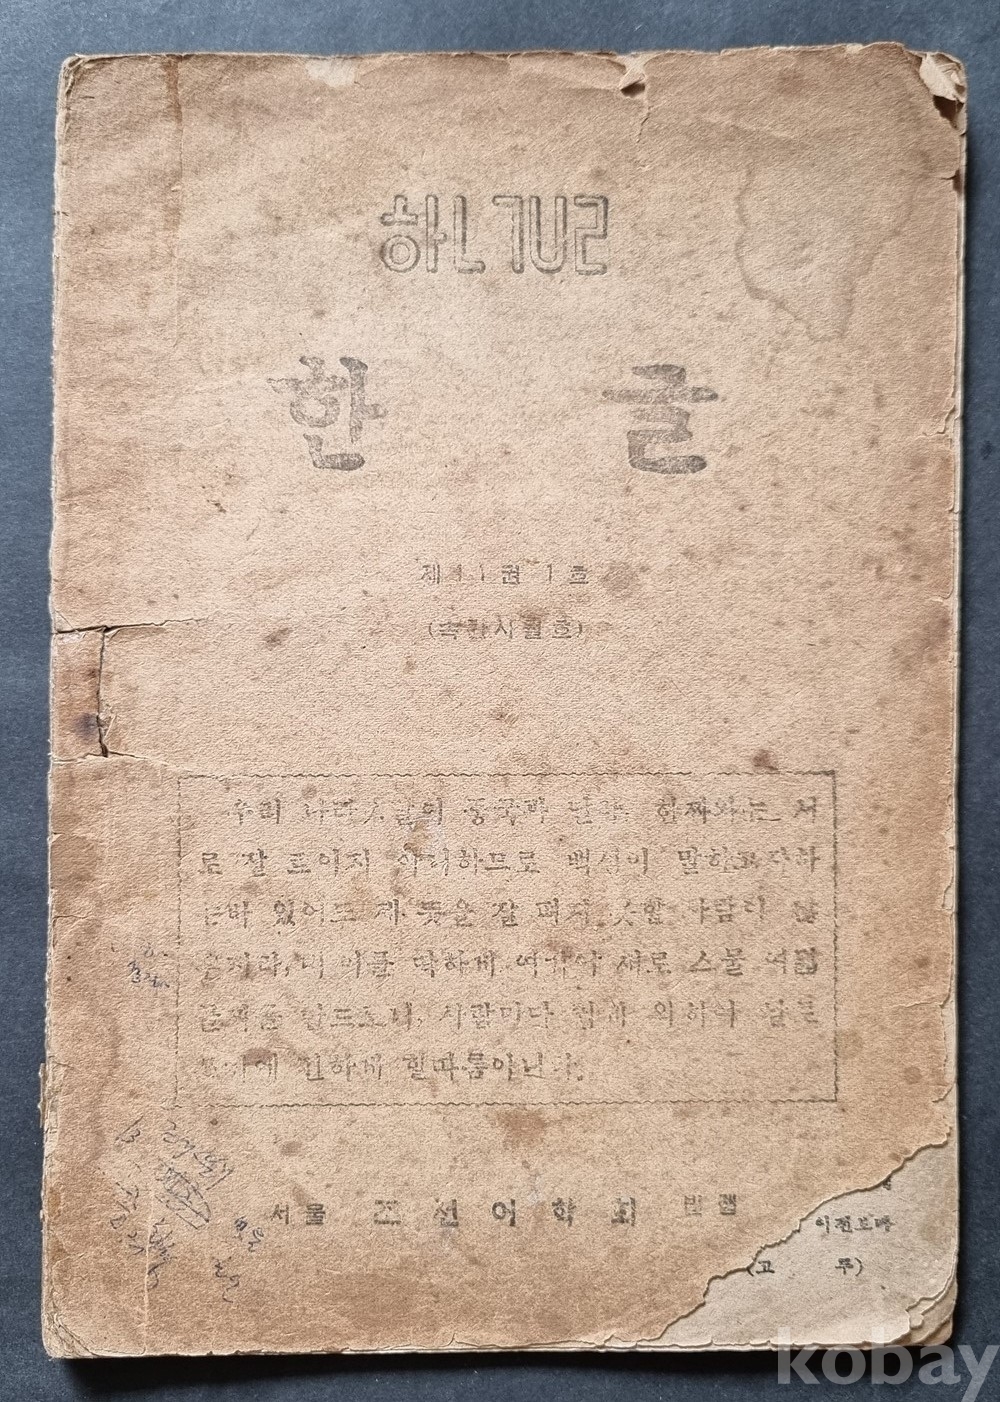 ㅎㅏㄴㄱㅡㄹ
한 글
제11권 1호
(속간사월호)
우리 나라 말이 중국과 달라, 한짜와는 서
로 잘 통이지 아니하므로 백성이 말하고자하
는바 있어도 제 뜻을 잘 펴지 못할 사람이 많
은지라, 내 이를 딱하게 여기어 새로 스물 여덟
글자를 만드노니, 사람마다 쉽게 익히어 날로
쓰기에 편하게 할따름이니라.
서울 조선어학회 발행
이전보다
(고 루)
kobay